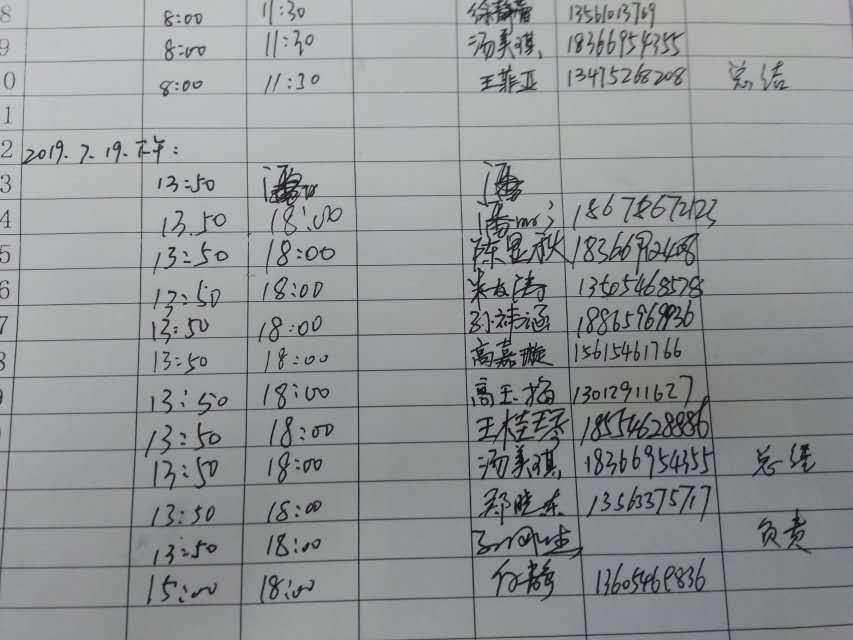 8 8:00 11:30 徐静 13561013769
9 8:00 11:30 汤美琪 18366954355
0 8:00 11:30 王菲亚 13475268208 总结
1
2 2019.7.19.下午:
3 13:50
4 13.50 18:00 潘 18678672123
5 13:50 18:00 陈显秋 18366912408
6 13:50 18:00 13505468578
7 13:50 18:00 孙祎涵 18865969936
8 13:50 18:00 高嘉璇 15615461766
13:50 18:00 高玉梅 13012911627
13:50 18:00 王桂琴 18554628886
13:50 18:00 汤美琪 18366954355 总结
13:50 18:00 郑晓东 13563375717
13:50 18:00 负责
15:00 18:00 静 13605469836